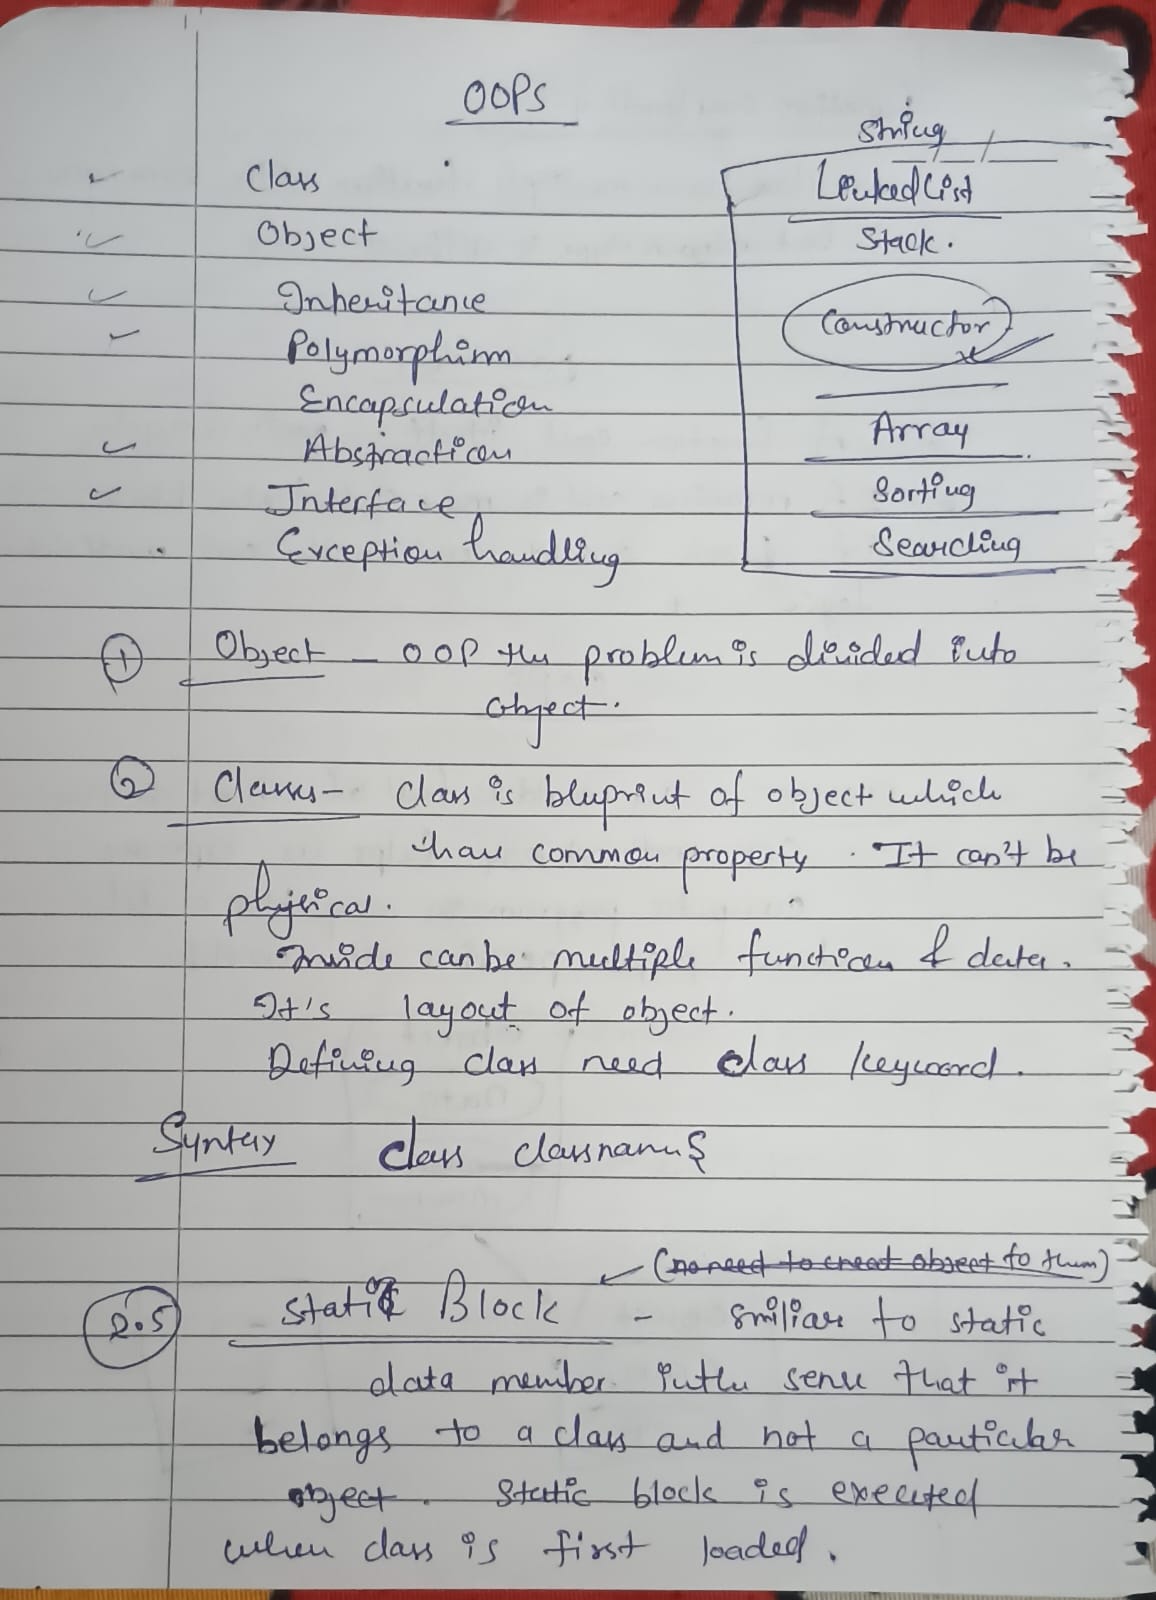 OOPS
Class
Object
Inheritance
Polymorphism
Encapsulation
Abstraction
Interface
Exception handling
String
Linked list
Stack.
Constructor
Array
Sorting
Searching
1 Object - OOP the problem is divided into
object.
2 Classes - class is bluprint of object which
have common property. It can't be
physical.
Inside can be multiple function & data.
It's layout of object.
Defining class need class keyword.
Syntax class classname {
(no need to creat object to them)
2.5 Static Block - Smiliar to static
data member in the sense that it
belongs to a class and not a particular
object. Static block is executed
when class is first loaded.